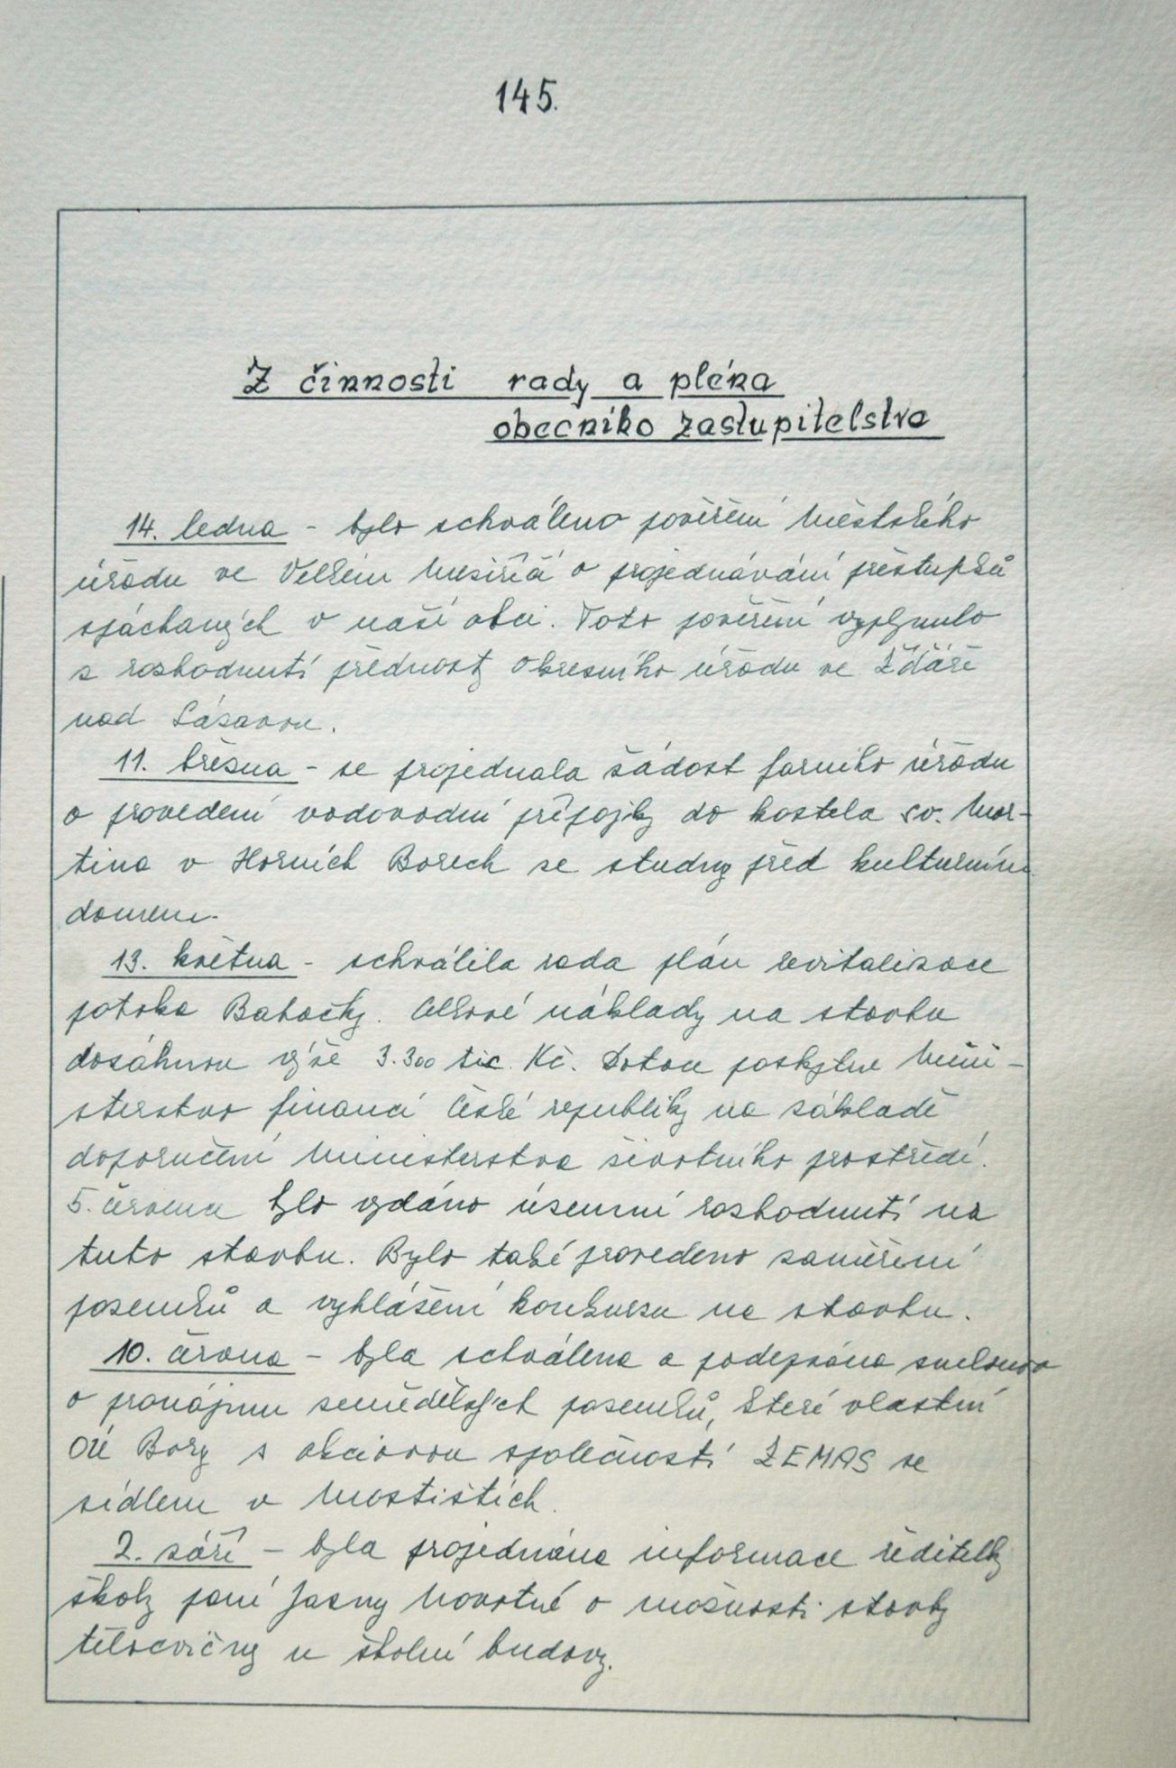 145.
Z činnosti rady a pléna
obecního zastupitelstva
14. ledna - bylo schváleno pověření Městského
úřadu ve Velkém Meziříčí o projednávání přestupků
spáchaných v naší obci. Toto pověření vyplynulo
z rozhodnutí přednosty Okresního úřadu ve Žďáře
nad Sázavou.
11. března - se projednala žádost farního úřadu
o provedení vodovodní přípojky do kostela sv. Mar-
tina v Horních Borech ze studny před kulturním
domem.
13. května - schválila rada plán revitalizace
potoka Babačky. Celkové náklady na stavbu
dosáhnou výše 3.300 tisíc. Kč. Dotaci poskytne Mini-
sterstvo financí České republiky na základě
doporučení Ministerstva životního prostředí.
5. června bylo vydáno územní rozhodnutí na
tuto stavbu. Bylo také provedeno zaměření
pozemků a vyhlášení konkursu na stavbu.
10. června - byla schválena a podepsána smlouva
o pronájmu zemědělských pozemků, které vlastní
OÚ Bory s akciovou společností ZEMAS se
sídlem v Mostištích.
2. září - byla projednána informace ředitelky
školy paní Jasny Novotné o možnosti stavby
tělocvičny u školní budovy.